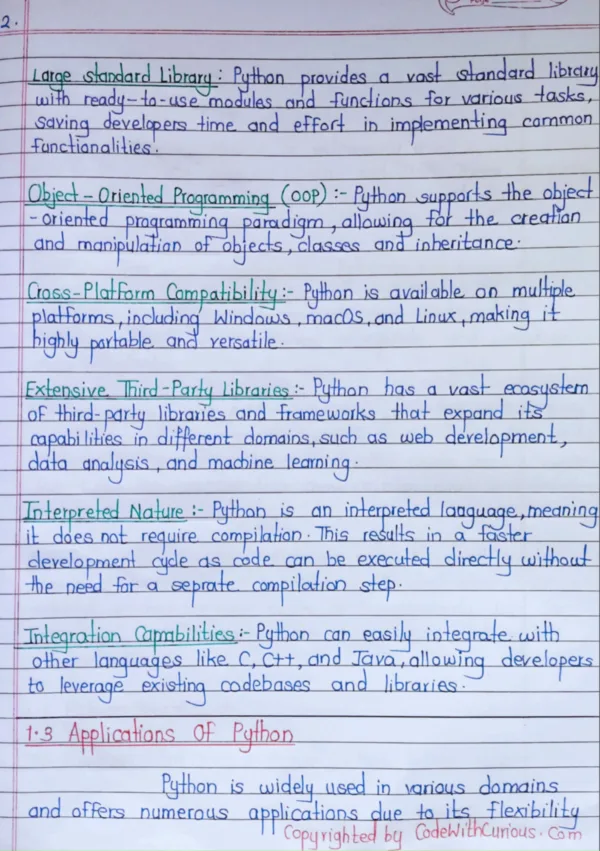 2.
Large standard Library: Python provides a vast standard library
with ready-to-use modules and functions for various tasks,
saving developers time and effort in implementing common
functionalities.
Object-Oriented Programming (OOP) :- Python supports the object
-oriented programming paradigm, allowing for the creation
and manipulation of objects, classes and inheritance.
Cross-Platform Compatibility:- Python is available on multiple
platforms, including Windows, macOS, and Linux, making it
highly portable and versatile.
Extensive Third-Party Libraries:- Python has a vast ecosystem
of third-party libraries and frameworks that expand its
capabilities in different domains, such as web development,
data analysis, and machine learning.
Interpreted Nature :- Python is an interpreted language, meaning
it does not require compilation. This results in a faster
development cycle as code can be executed directly without
the need for a seprate compilation step.
Integration Capabilities:- Python can easily integrate with
other languages like C, C++, and Java, allowing developers
to leverage existing codebases and libraries.
1.3 Applications Of Python
Python is widely used in various domains
and offers numerous applications due to its flexibility
Copyrighted by CodeWithCurious.Com